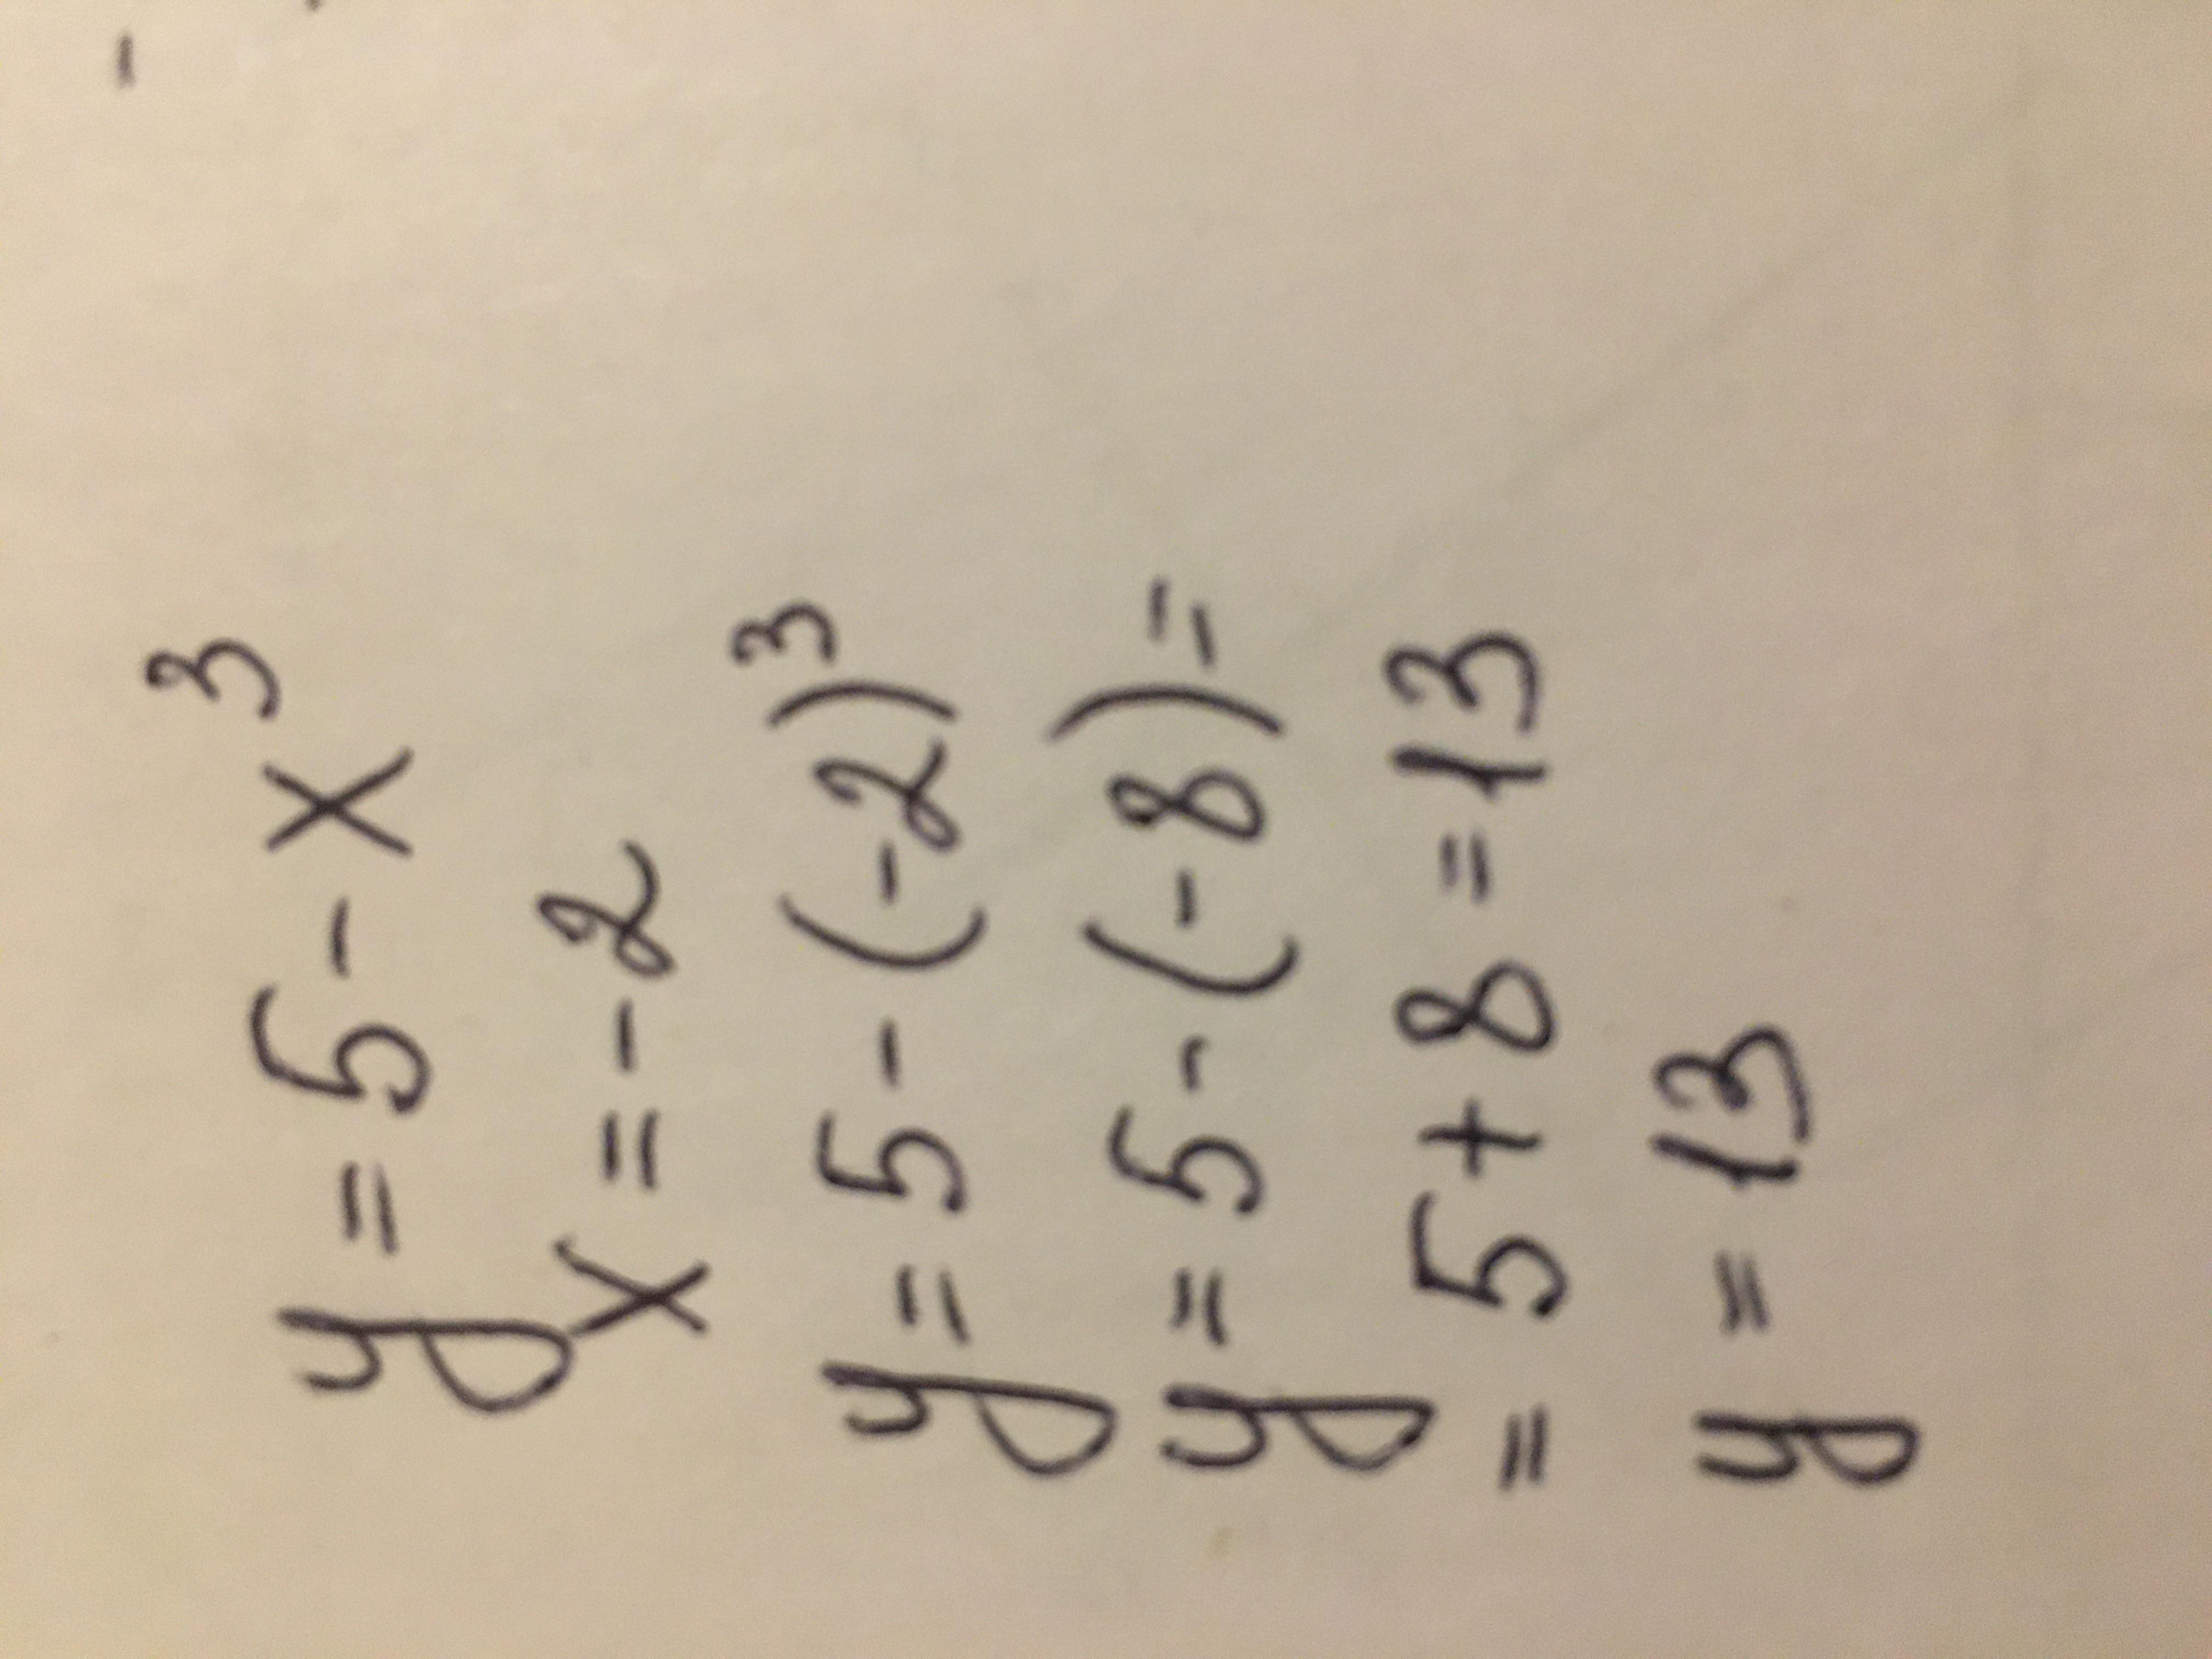 y = 5 - x³
x = - 2
y = 5 - (-2)³
y = 5 - (-8) =
= 5 + 8 = 13
y = 13